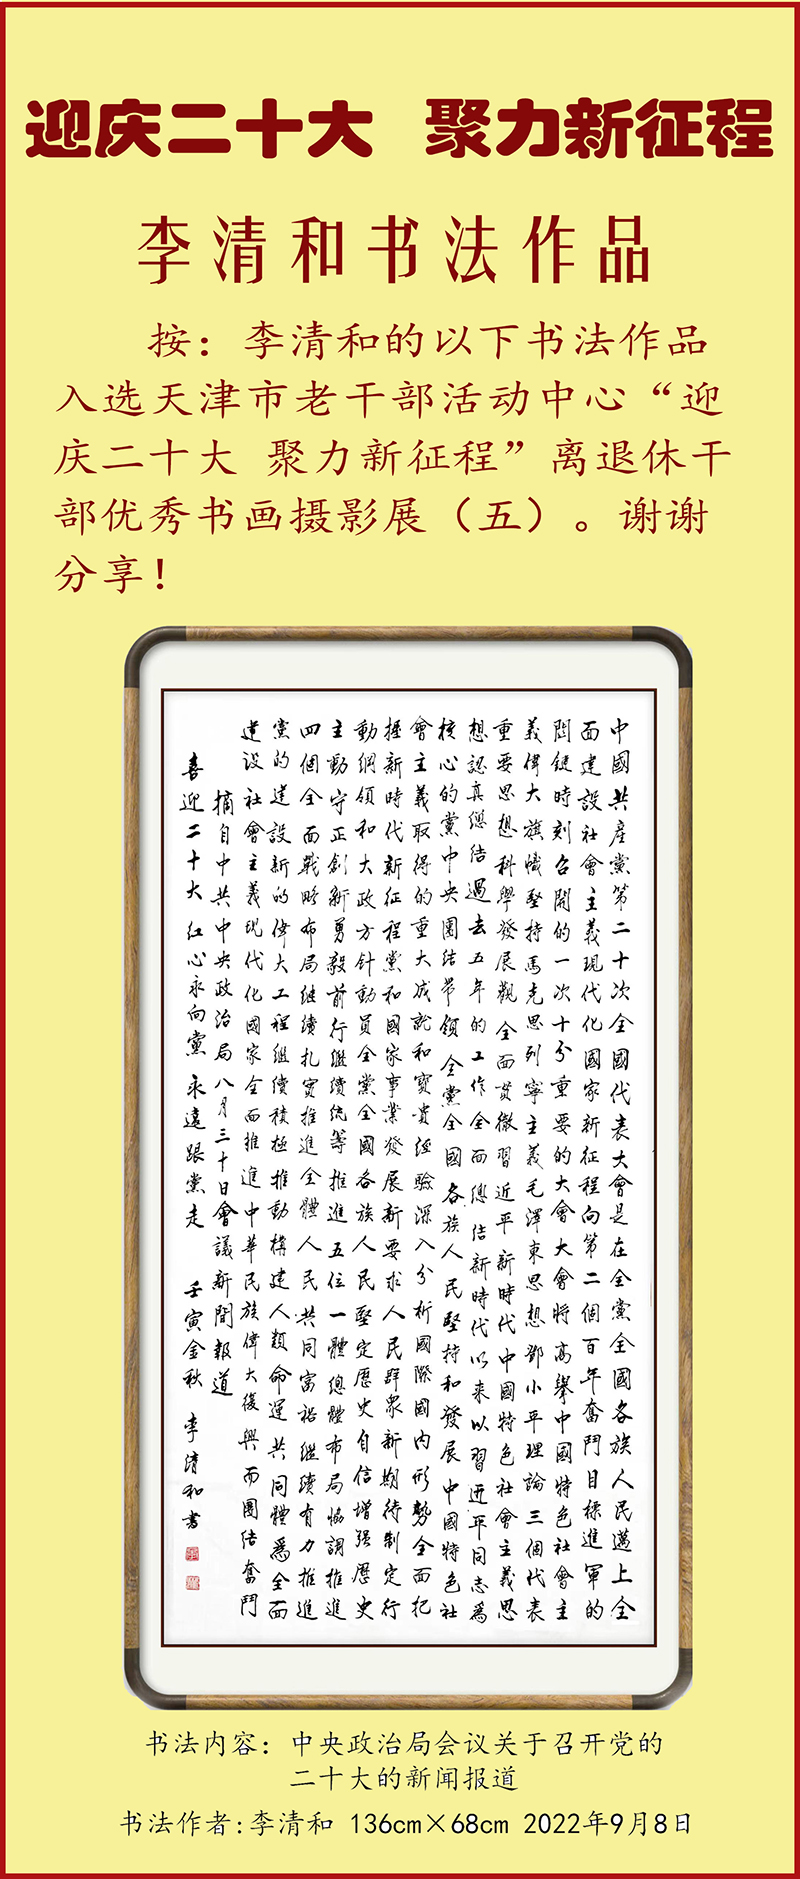 迎庆二十大 聚力新征程
李清和书法作品
按：李清和的以下书法作品
入选天津市老干部活动中心“迎
庆二十大 聚力新征程”离退休干
部优秀书画摄影展（五）。谢谢
分享！
中國共產黨第二十次全國代表大會是在全黨全國各族人民邁上全
面建設社會主義現代化國家新征程向第二個百年奮鬥目標進軍的
關鍵時刻召開的一次十分重要的大會大會將高舉中國特色社會主
義偉大旗幟堅持馬克思列寧主義毛澤東思想鄧小平理論三個代表
重要思想科學發展觀全面貫徹習近平新時代中國特色社會主義思
想認真總結過去五年的工作全面總結新時代以来以習近平同志為
核心的黨中央團結带領全黨全國各族人民堅持和發展中國特色社
會主義取得的重大成就和寶貴經驗深入分析國際國内形勢全面把
握新時代新征程黨和國家事業發展新要求人民群衆新期待制定行
動綱領和大政方針動員全黨全國各族人民堅定歷史自信增强歷史
主動守正創新勇毅前行繼續統筹推進五位一體總體布局協調推進
四個全面戰略布局繼續扎實推進全體人民共同富裕繼續有力推進
黨的建設新的偉大工程繼續積極推動構建人類命運共同體爲全面
建设社會主義现代化國家全面推進中華民族偉大復興而團结奮鬥
摘自中共中央政治局八月三十日會議新聞報道
喜迎二十大 红心永向黨 永遠跟黨走 壬寅金秋 李清和書
书法内容：中央政治局会议关于召开党的
二十大的新闻报道
书法作者:李清和 136cm×68cm 2022年9月8日